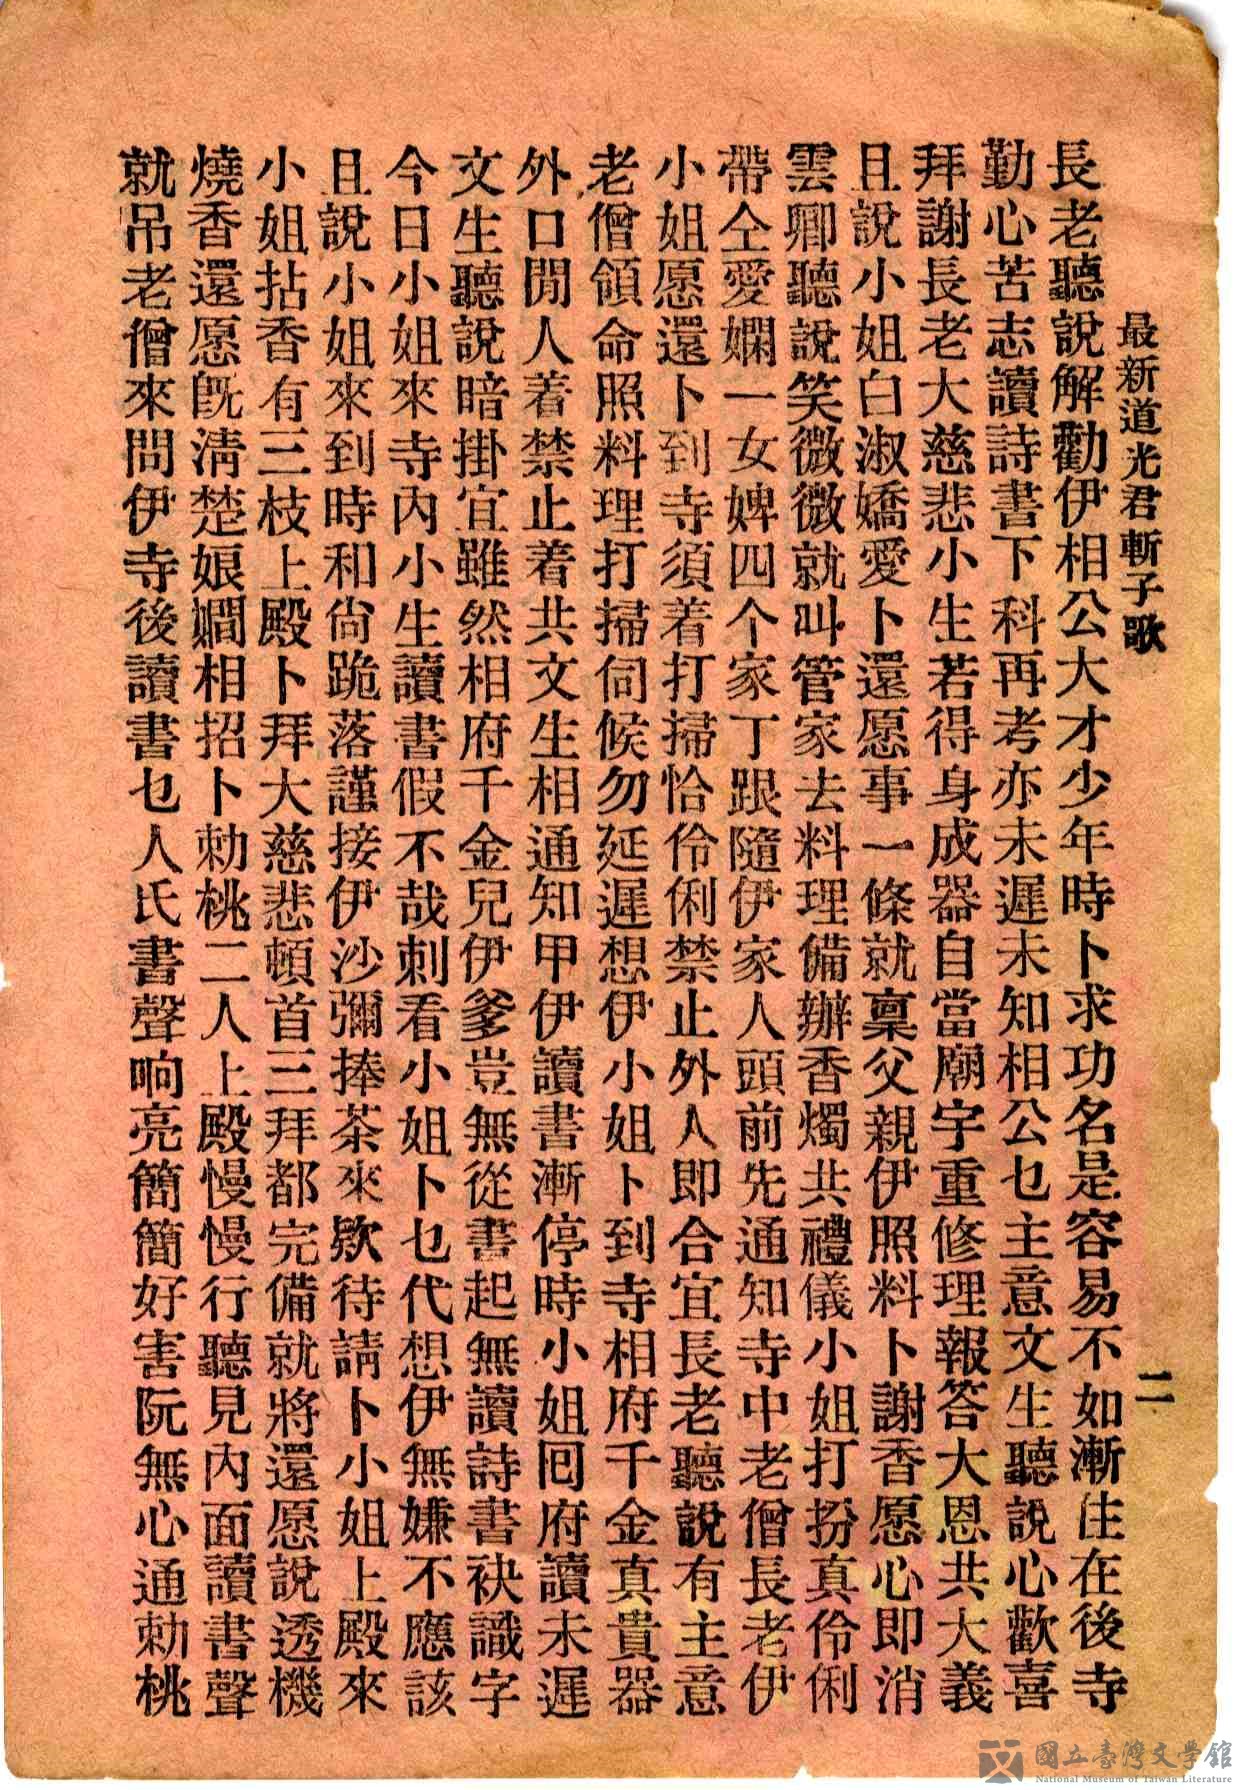 最新道光君斬子歌
二
長老聽說解勸伊相公大才少年時卜求功名是容易不如漸住在後寺
勤心苦志讀詩書下科再考亦未遲未知相公乜主意文生聽說心歡喜
拜謝長老大慈悲小生若得身成器自當廟宇重修理報答大恩共大義
且說小姐白淑嬌愛卜還愿事一條就稟父親伊照料卜謝香愿心即消
雲卿聽說笑微微就叫管家去料理備辦香燭共禮儀小姐打扮真伶俐
帶仝愛嫻一女婢四个家丁跟隨伊家人頭前先通知寺中老僧長老伊
小姐愿還卜到寺須着打掃恰伶俐禁止外人即合宜長老聽說有主意
老僧領命照料理打掃伺候勿延遲想伊小姐卜到寺相府千金真貴器
外口閒人着禁止着共文生相通知甲伊讀書漸停時小姐囘府讀未遲
文生聽說暗掛宜雖然相府千金兒伊爹豈無從書起無讀詩書袂識字
今日小姐來寺內小生讀書假不哉刺看小姐卜乜代想伊無嫌不應該
且說小姐來到時和尙跪落謹接伊沙彌捧茶來欵待請卜小姐上殿來
小姐拈香有三枝上殿卜拜大慈悲頓首三拜都完備就將還愿說透機
燒香還愿既淸楚娘嫺相招卜勅桃二人上殿慢慢行聽見內面讀書聲
就吊老僧來問伊寺後讀書乜人氏書聲响亮簡簡好害阮無心通勅桃
國立臺灣文學館
National Museum of Taiwan Literature